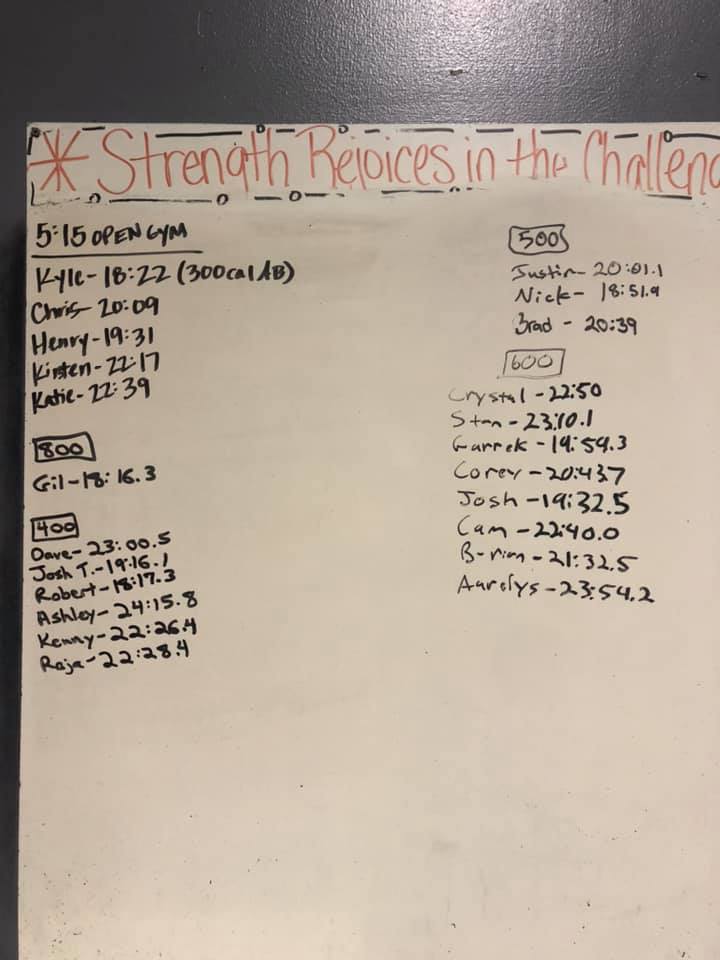 * Strength Rejoices in the Challeng
5:15 OPEN GYM
Kyle - 18:22 (300cal AB)
Chris - 20:09
Henry - 19:31
Kirsten - 22:17
Katie - 22:39
800
Gil - 18:16.3
400
Dave - 23:00.5
Josh T. - 19:16.1
Robert - 18:17.3
Ashley - 24:15.8
Kenny - 22:26.4
Raja - 22:28.4
500
Justin - 20:01.1
Nick - 18:51.9
Brad - 20:39
600
Crystal - 22:50
Stan - 23:10.1
Garrek - 19:59.3
Corey - 20:43.7
Josh - 19:32.5
Cam - 22:40.0
Brian - 21:32.5
Aurelys - 23:54.2